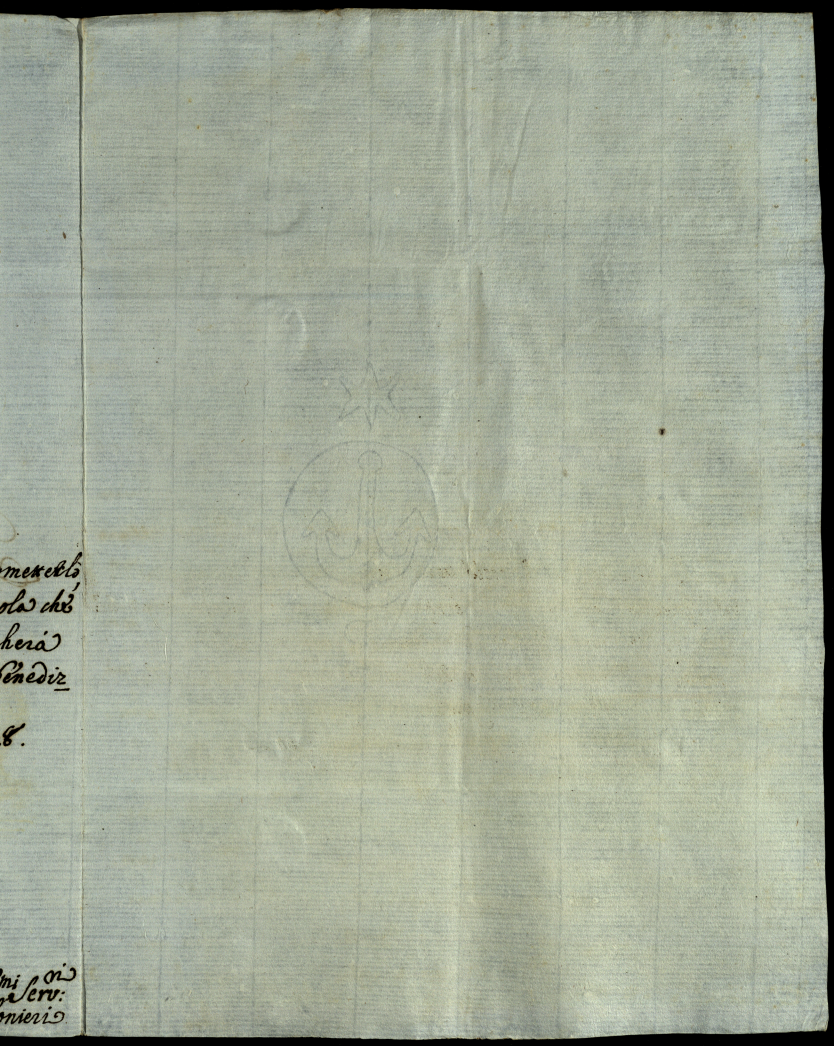 ometterlo,
ola che
herà
Benediz
8.
mi ri
Serv:
onieri